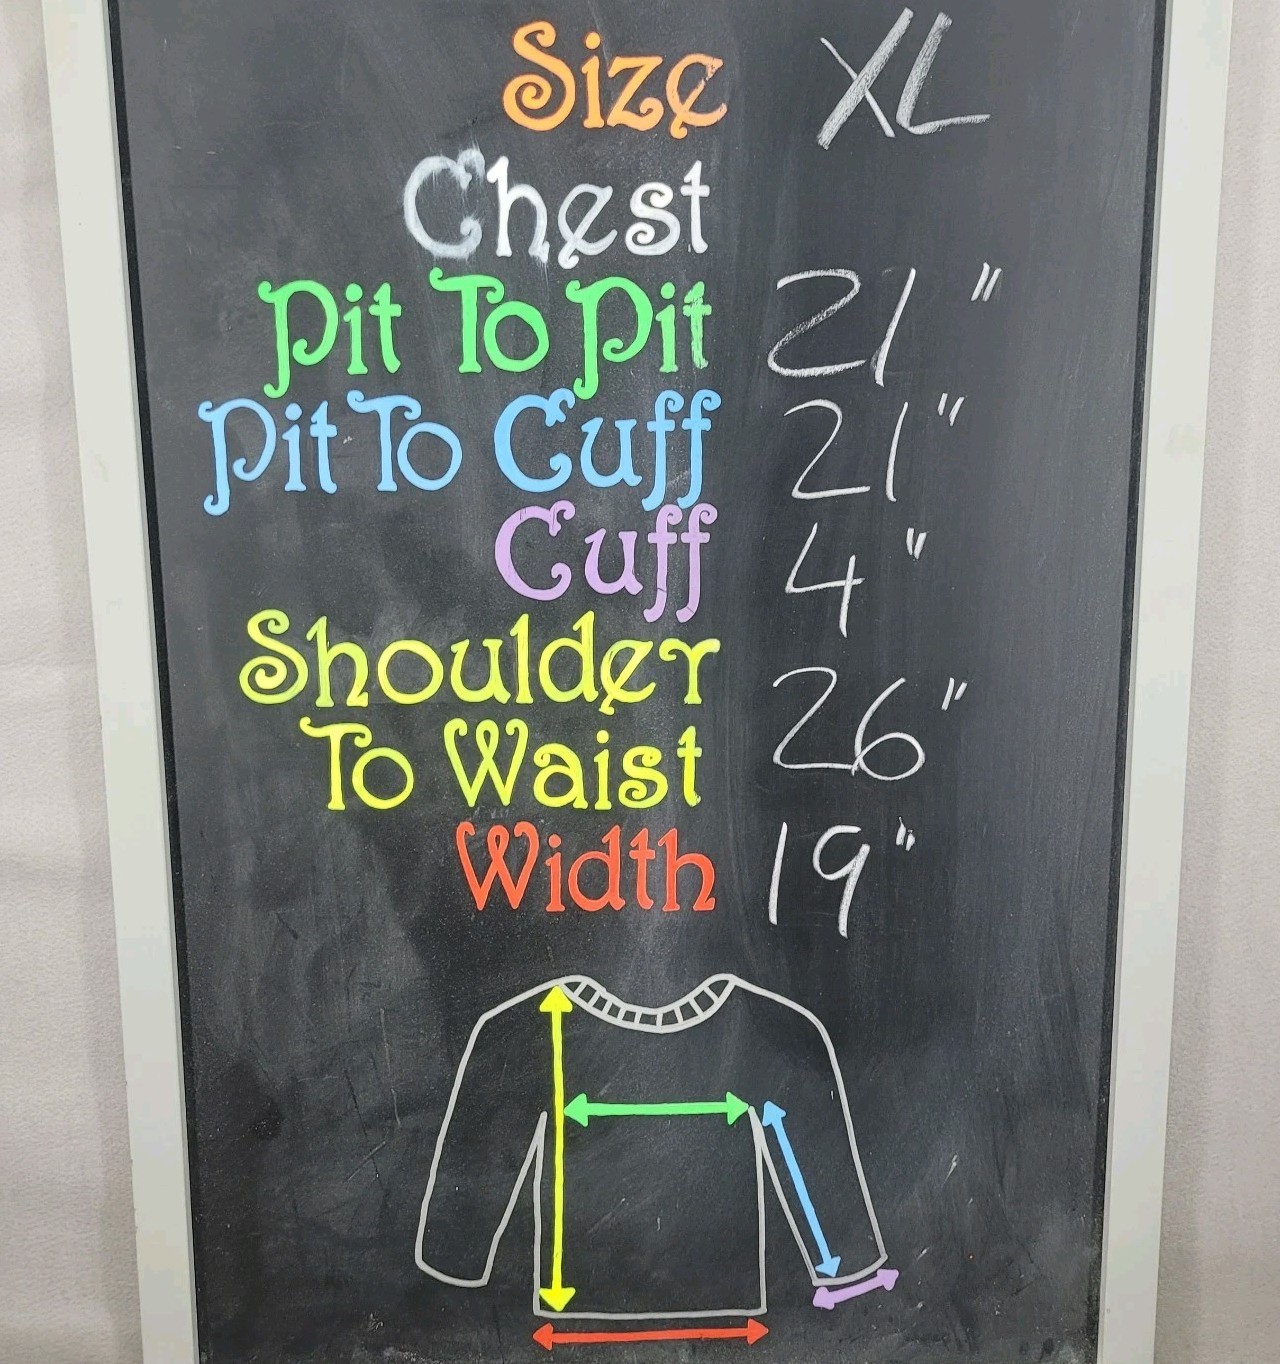 Size XL
Chest
Pit To Pit 21"
Pit To Cuff 21"
Cuff 4"
Shoulder
To Waist 26"
Width 19"